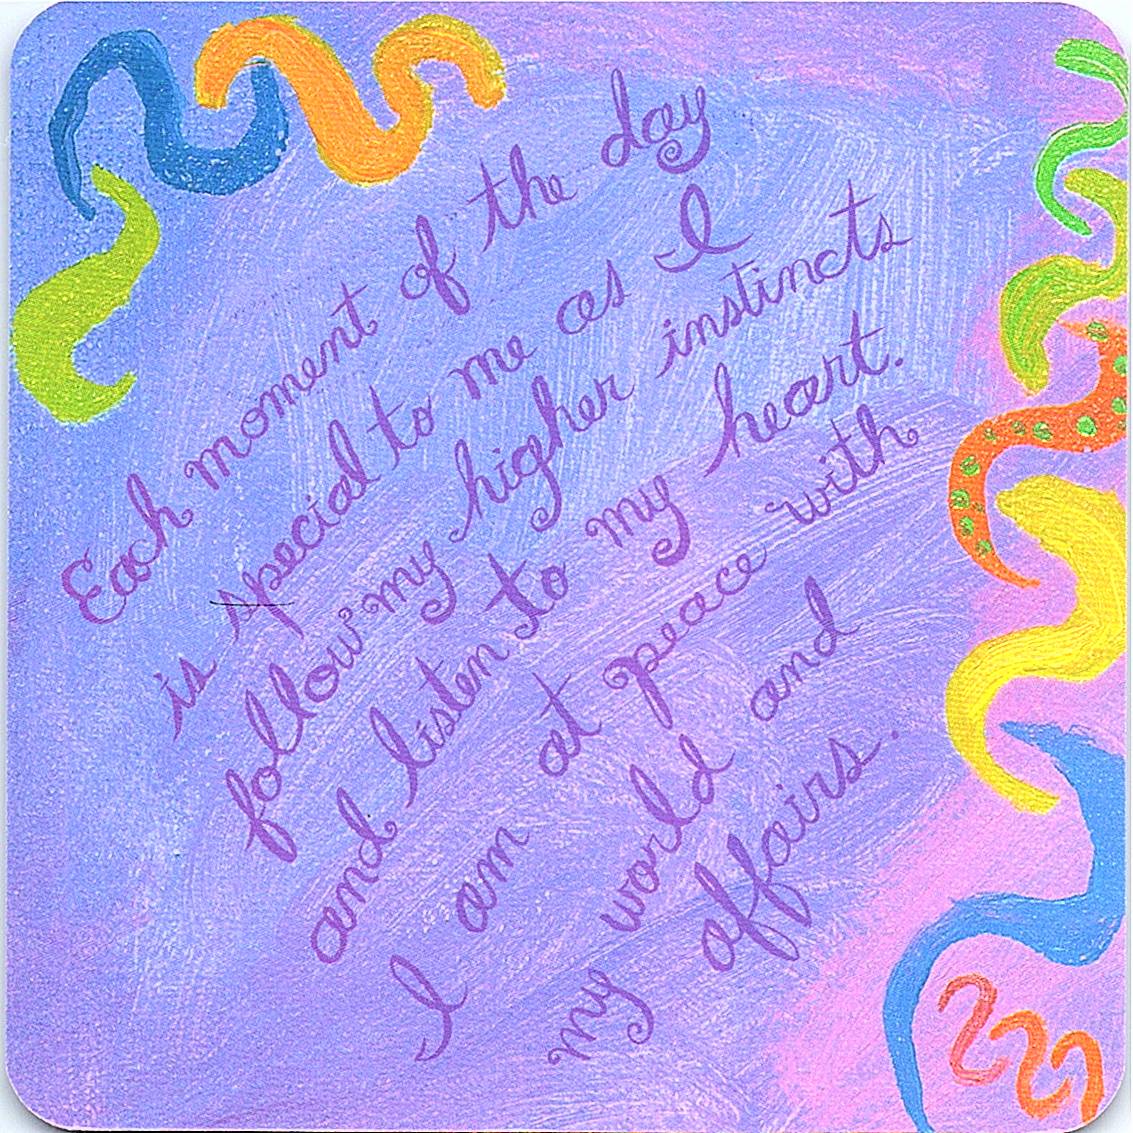 Each moment of the day
is special to me as I
follow my higher instincts
and listen to my heart.
I am at peace with
my world and
my affairs.